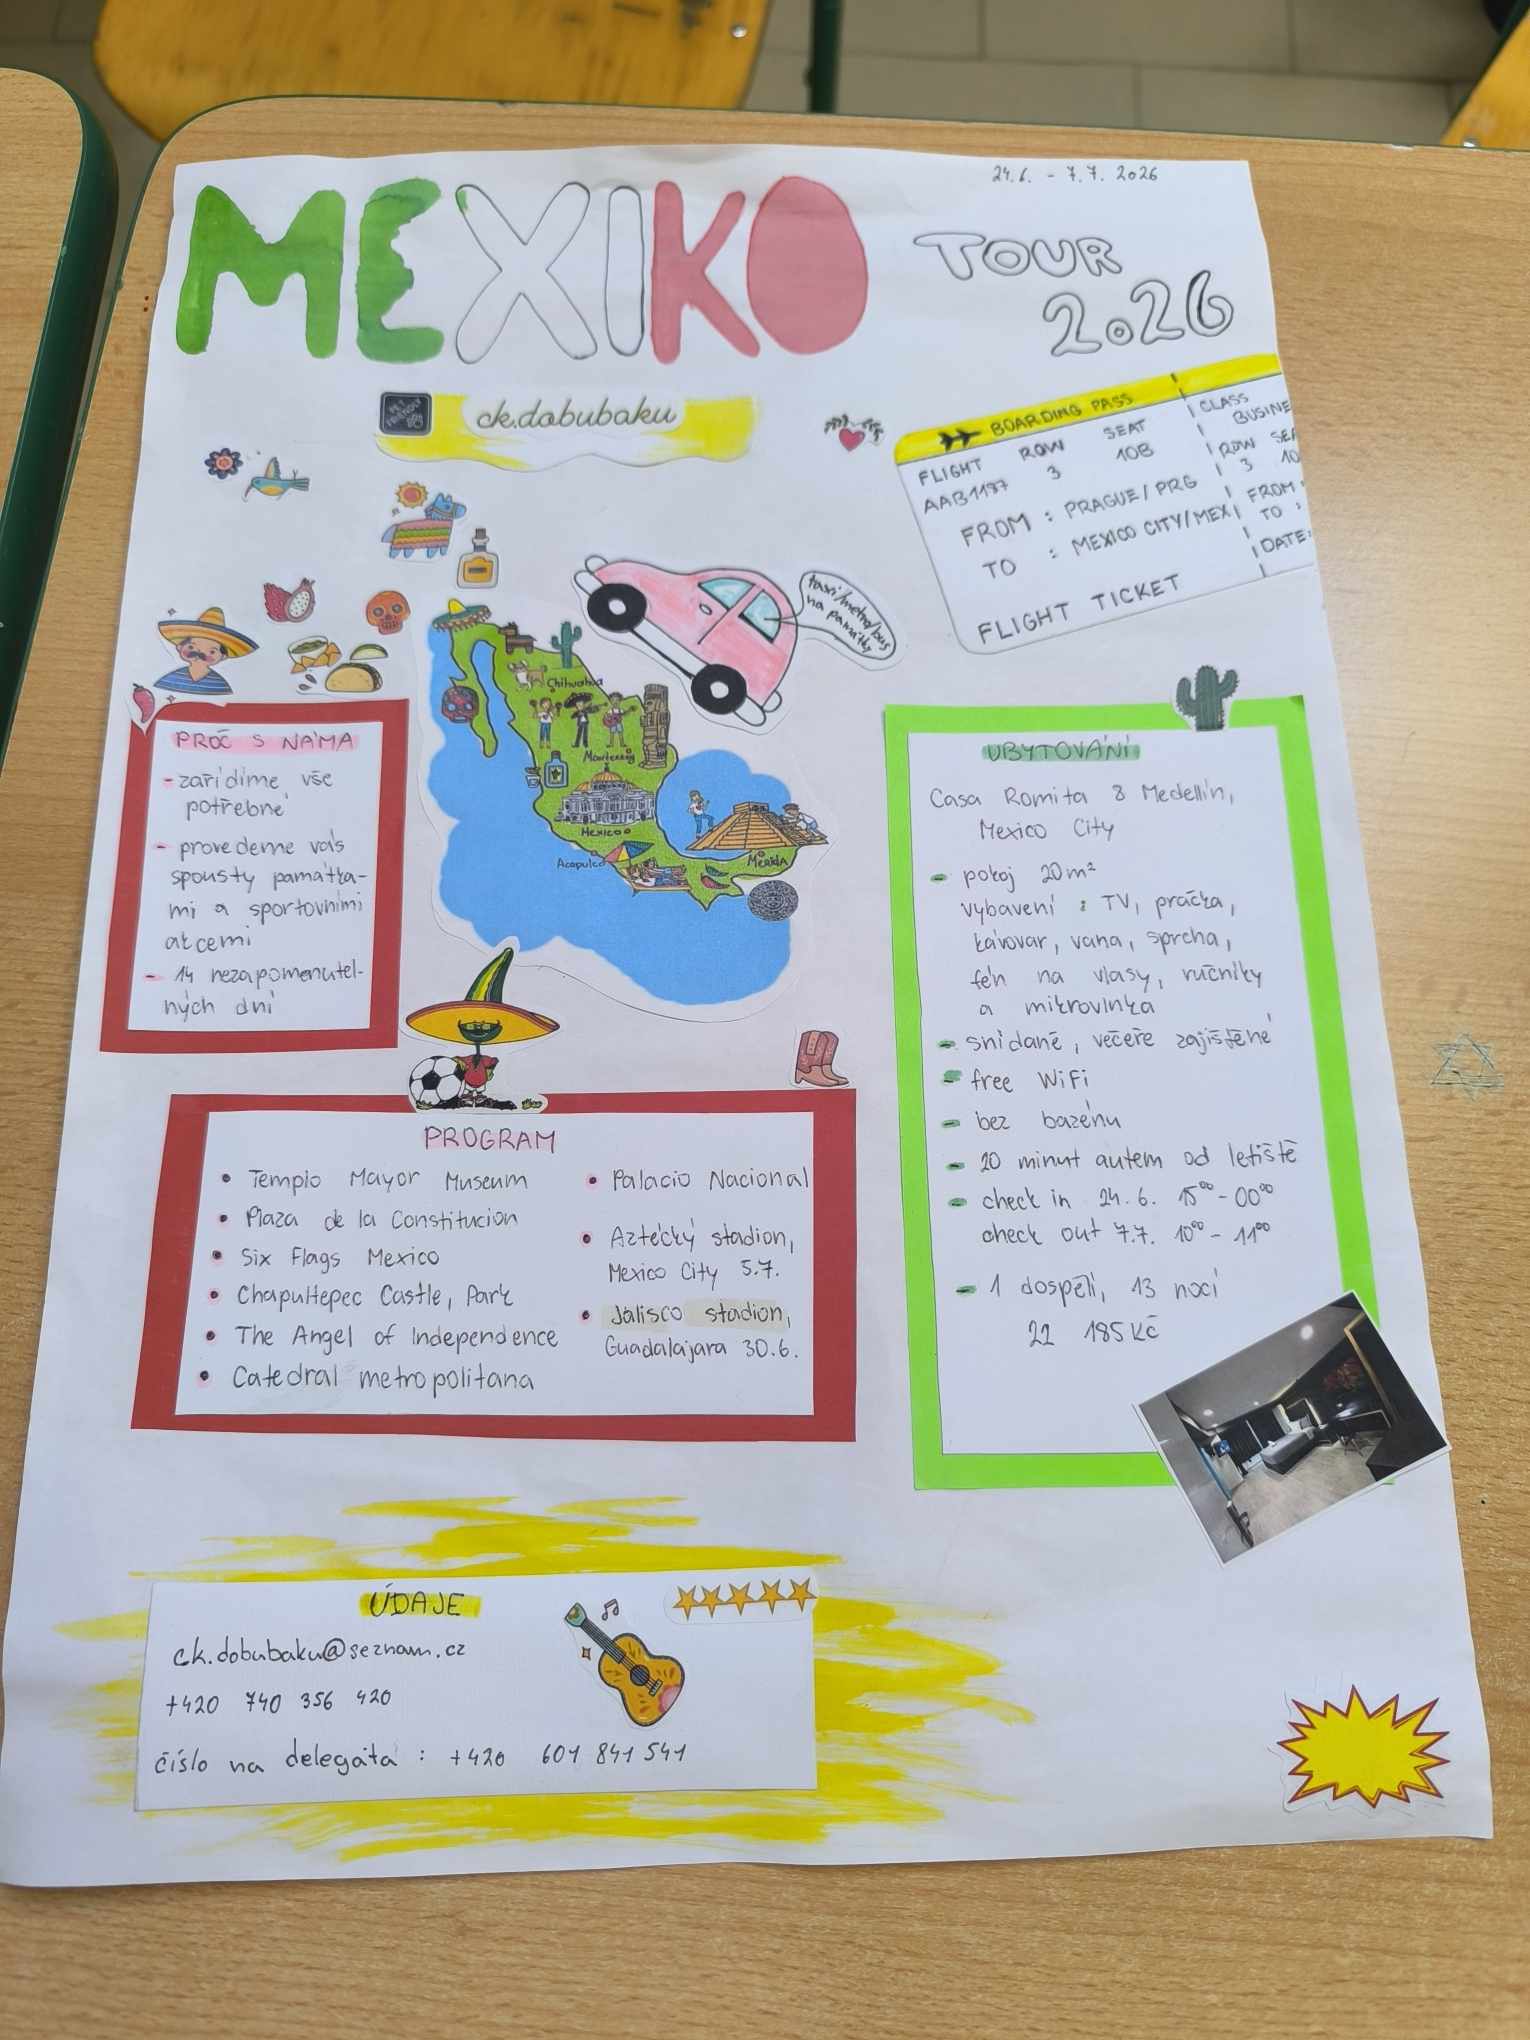 24.6. - 7.7. 2026
MEXIKO
TOUR
2026
PET
FRIENDLY
ck.dobubaku
BOARDING PASS
FLIGHT ROW SEAT
AAB1197 3 10B
FROM : PRAGUE/PRG
TO : MEXICO CITY/MEX
FLIGHT TICKET
CLASS
BUSINE
ROW SEA
3 10
FROM:
TO :
DATE:
taxi/metro/bus
na památky
Chihuahua
Monterrey
Mexico
Acapulco
Merida
PROČ S NÁMA
- zařídíme vše
potřebné
- provedeme vás
spousty památka-
mi a sportovními
akcemi
- 14 nezapomenutel-
ných dní
UBYTOVÁNÍ
Casa Romita 8 Medellín,
Mexico City
- pokoj 20m²
vybavení : TV, pračka,
kávovar, vana, sprcha,
fén na vlasy, ručníky
a mikrovlnka
- snídaně, večeře zajištěné
- free WiFi
- bez bazénu
- 20 minut autem od letiště
- check in 24.6. 15⁰⁰ - 00⁰⁰
check out 7.7. 10⁰⁰ - 11⁰⁰
- 1 dospělí, 13 nocí
22 185 Kč
PROGRAM
• Templo Mayor Museum
• Plaza de la Constitucion
• Six Flags Mexico
• Chapultepec Castle, Park
• The Angel of Independence
• Catedral metropolitana
• Palacio Nacional
• Aztécký stadion,
Mexico City 5.7.
• Jalisco stadion,
Guadalajara 30.6.
ÚDAJE
ck.dobubaku@seznam.cz
+420 740 356 420
číslo na delegáta : +420 601 841 541